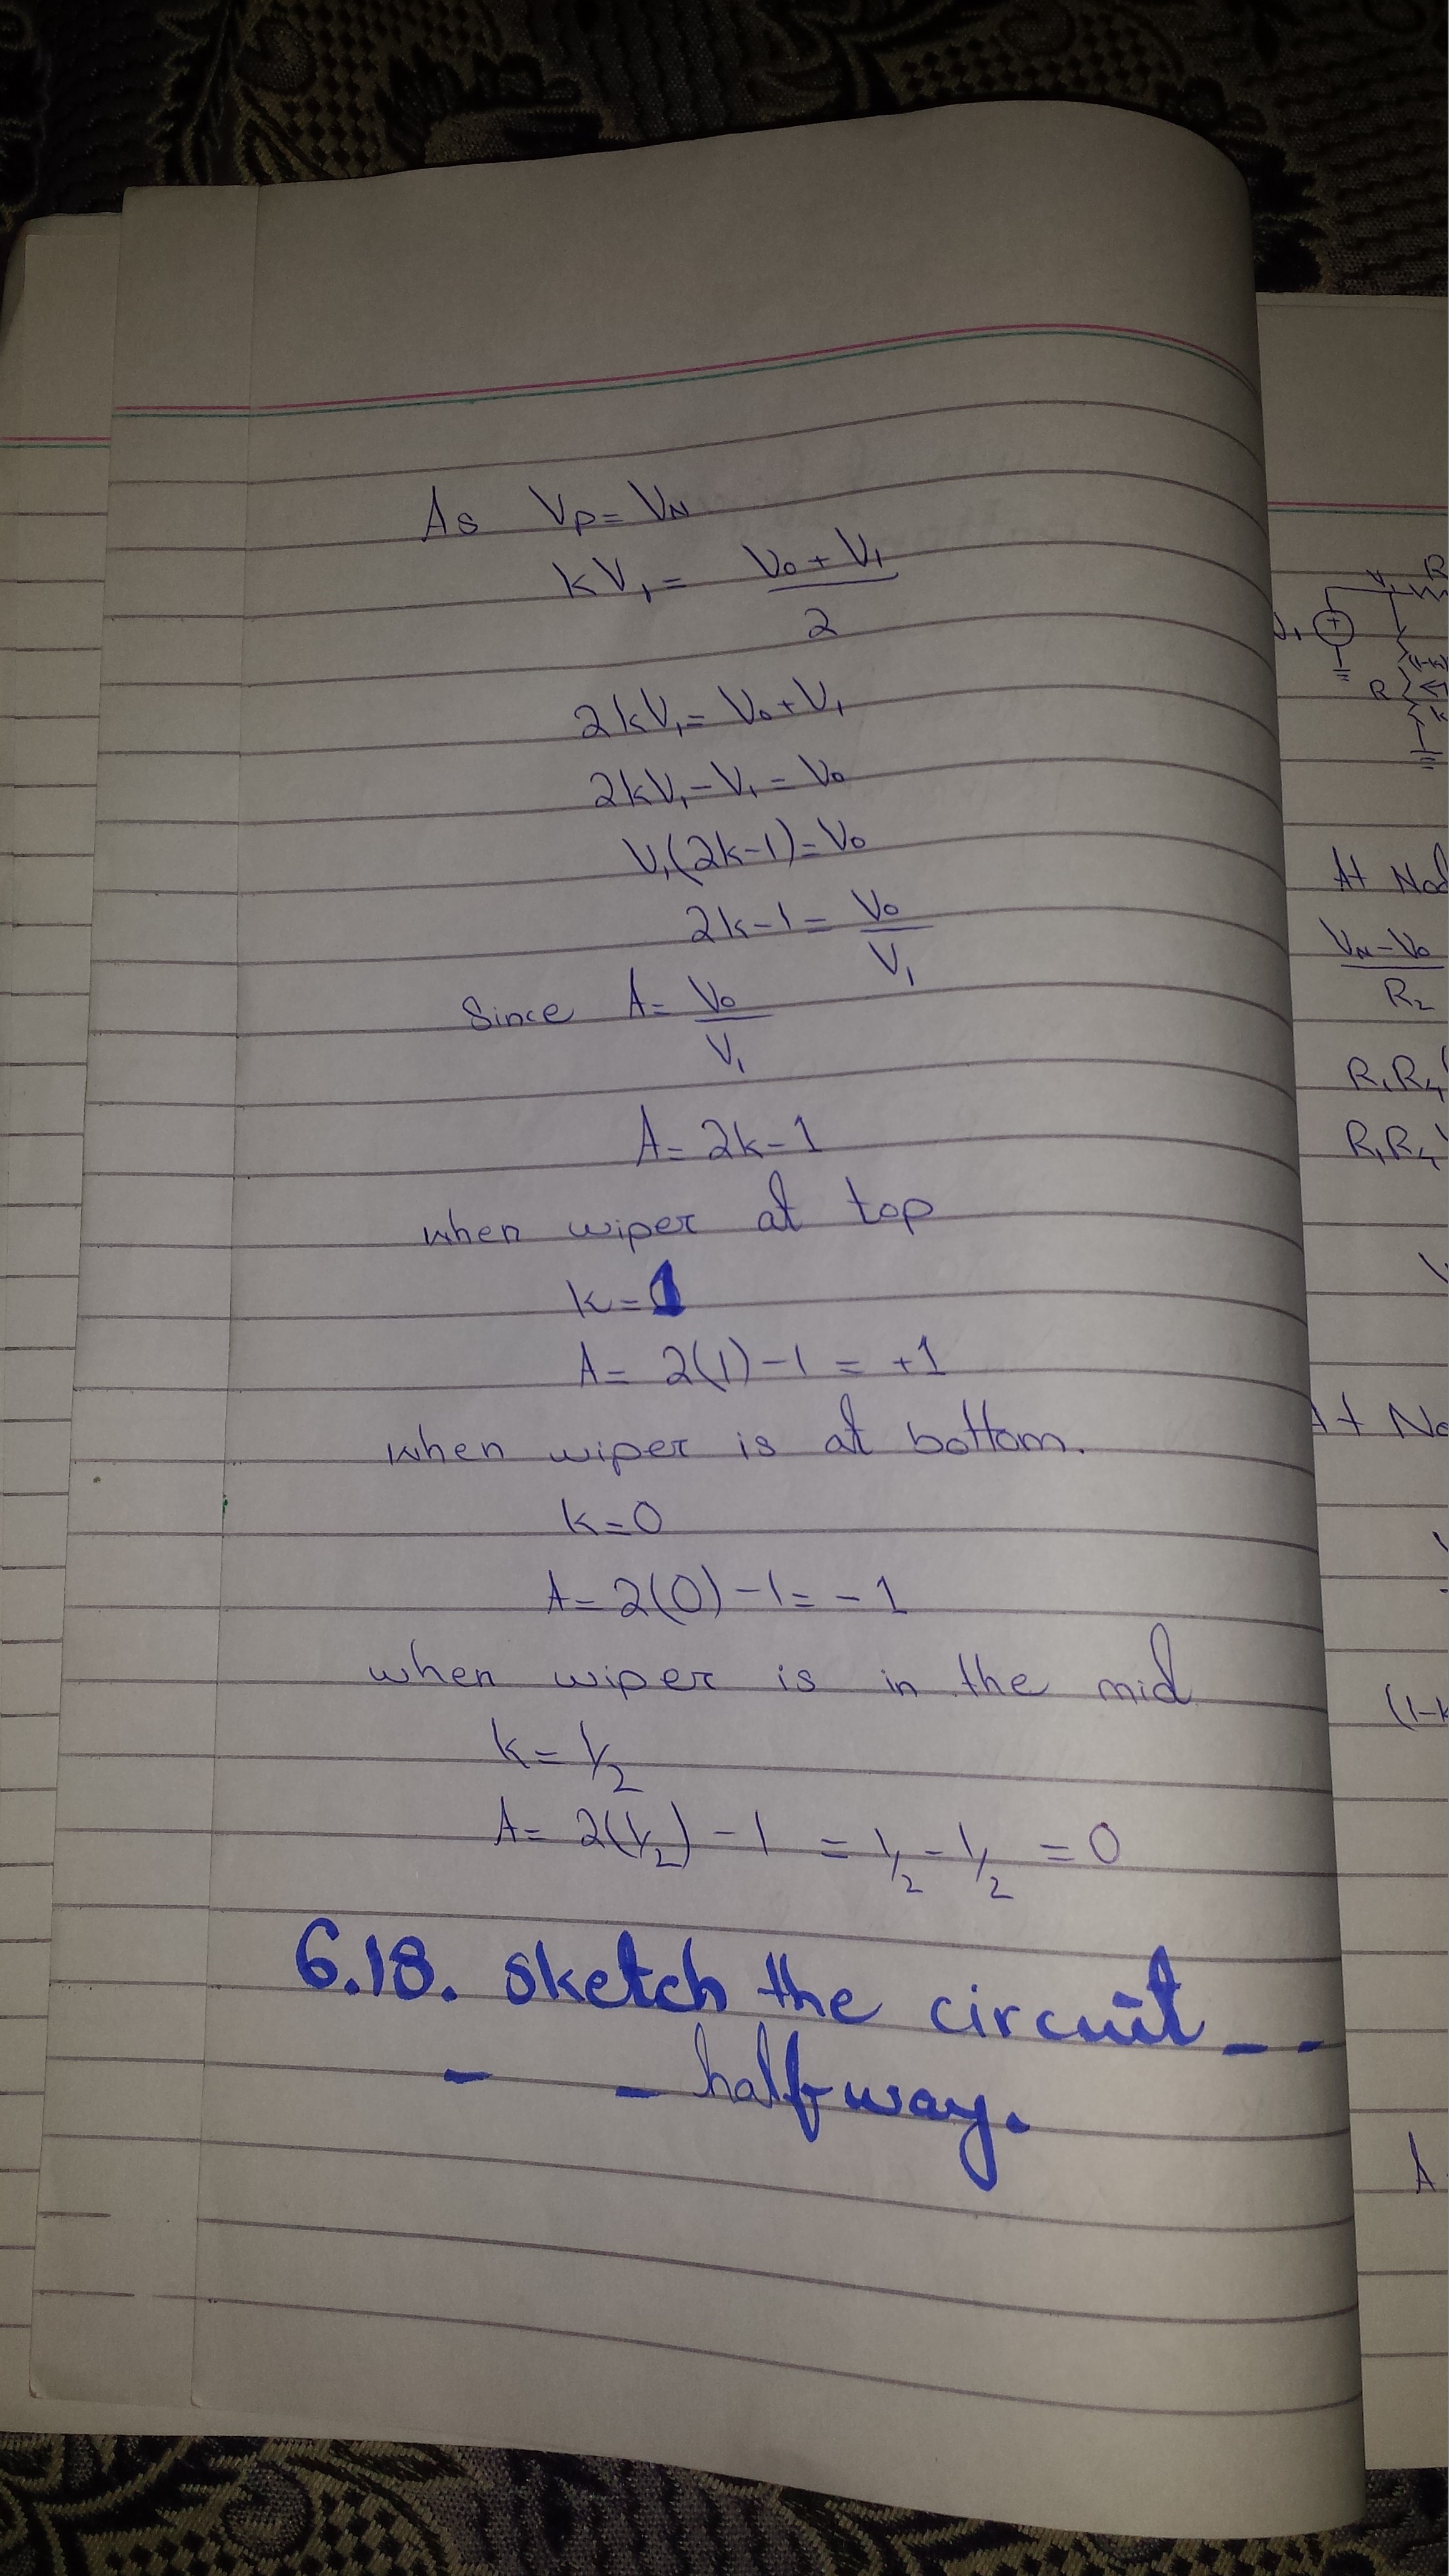 As Vp = VN
kV1 = V0 + V1
2
2kV1 = V0 + V1
2kV1 - V1 = V0
V1(2k-1) = V0
2k-1 = V0
V1
Since A = V0
V1
A = 2k-1
when wiper at top
k = 1
A = 2(1) - 1 = +1
when wiper is at bottom.
k = 0
A = 2(0) - 1 = -1
when wiper is in the mid
k = 1/2
A = 2(1/2) - 1 = 1/2 - 1/2 = 0
6.18. sketch the circuit - -
- - halfway.
R
V1
(1-k)
R
k
At Nod
VN - V0
R2
R1R4
R1R4
At No
(1-k
A